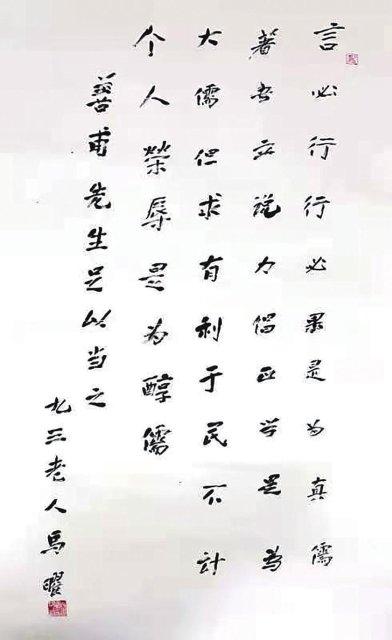 言必行行必果是为真儒
著书立说力倡正学是为
大儒但求有利于民不计
个人榮辱是为醇儒
善甫先生足以当之
九三老人馬曜